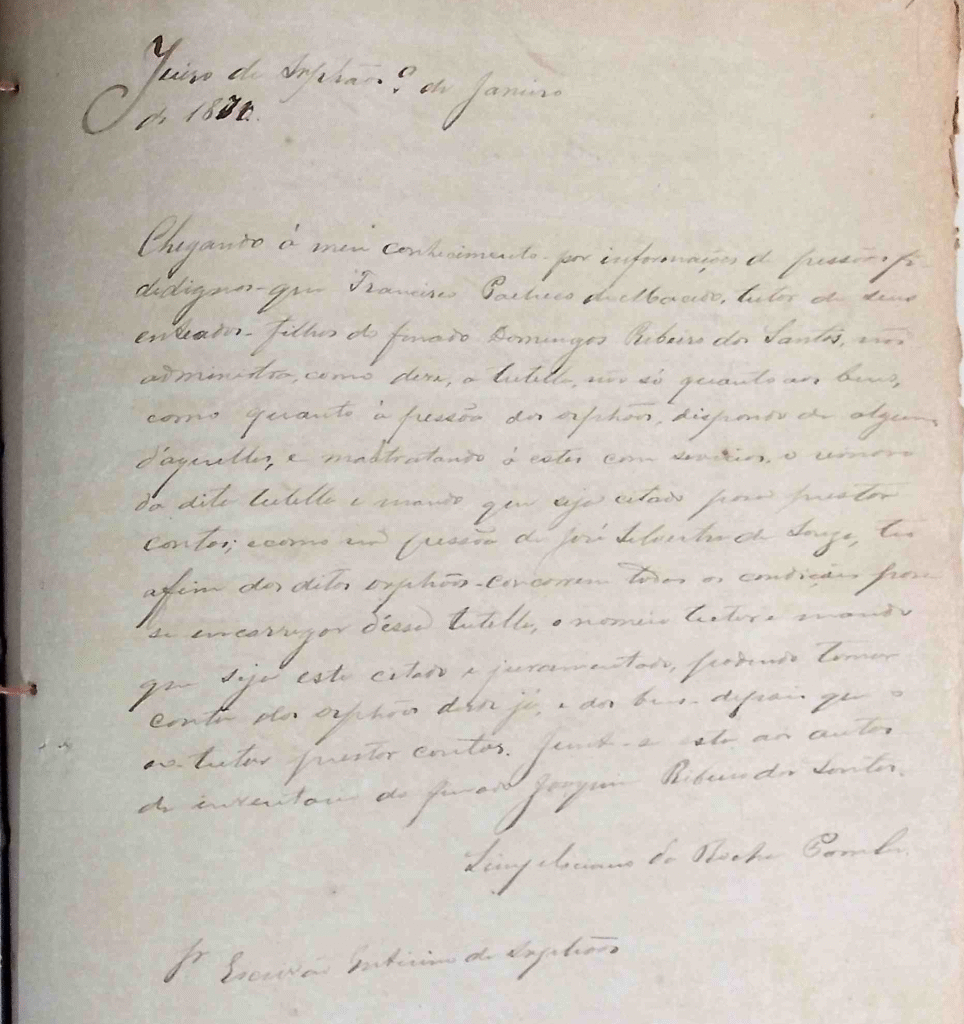 Juizo de Orphãos de Janeiro
de 1870.
Chegando á meu conhecimento por informações de pessôas fi
dedignas que Francisco Pacheco de Macedo, tutor de seus
enteados filhos do finado Domingos Ribeiro dos Santos, não
administra, como deve, a tutella, não só quanto aos bens,
como quanto á pessôa dos orphãos, dispondo de alguns
d'aquelles, e maltratando á estes com sevicias, o removo
da dita tutella e mando que seja citado para prestar
contas; e como na pessôa de José Silvestre de Souza, tio
afim dos ditos orphãos concorrem todas as condições para
se encarregar d'essa tutella, o nomeio tutor e mando
que seja este citado e juramentado, podendo tomar
conta dos orphãos desde já, e dos bens depois que o
ex-tutor prestar contas. Junte-se esta aos autos
de inventario do finado Joaquim Ribeiro dos Santos.
da Rocha Pombo.
Sr Escrivão Interino de Orphãos